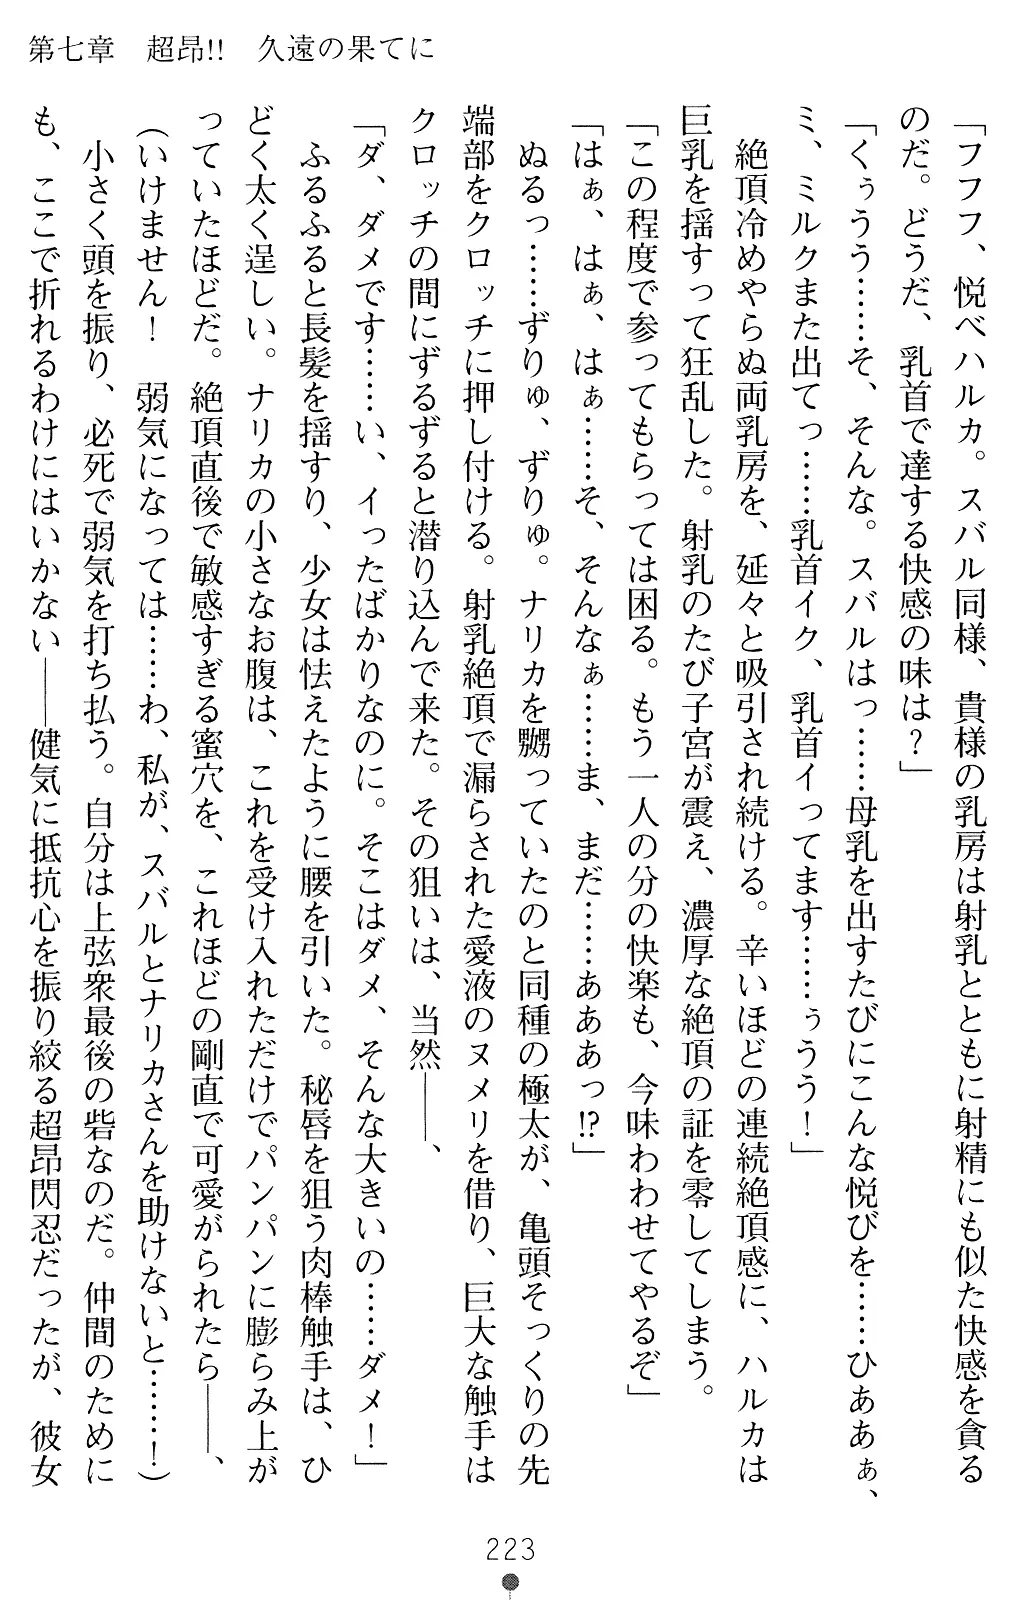 第七章　超昂!!　久遠の果てに
「フフフ、悦べハルカ。スバル同様、貴様の乳房は射乳とともに射精にも似た快感を貪る
のだ。どうだ、乳首で達する快感の味は？」
「くぅうう……そ、そんな。スバルはっ……母乳を出すたびにこんな悦びを……ひああぁ、
ミ、ミルクまた出てっ……乳首イク、乳首イってます……ぅうう！」
　絶頂冷めやらぬ両乳房を、延々と吸引され続ける。辛いほどの連続絶頂感に、ハルカは
巨乳を揺すって狂乱した。射乳のたび子宮が震え、濃厚な絶頂の証を零してしまう。
「この程度で参ってもらっては困る。もう一人の分の快楽も、今味わわせてやるぞ」
「はぁ、はぁ、はぁ……そ、そんなぁ……ま、まだ……あああっ!?」
　ぬるっ……ずりゅ、ずりゅ。ナリカを嬲っていたのと同種の極太が、亀頭そっくりの先
端部をクロッチに押し付ける。射乳絶頂で漏らされた愛液のヌメリを借り、巨大な触手は
クロッチの間にずるずると潜り込んで来た。その狙いは、当然――、
「ダ、ダメです……い、イったばかりなのに。そこはダメ、そんな大きいの……ダメ！」
　ふるふると長髪を揺すり、少女は怯えたように腰を引いた。秘唇を狙う肉棒触手は、ひ
どく太く逞しい。ナリカの小さなお腹は、これを受け入れただけでパンパンに膨らみ上が
っていたほどだ。絶頂直後で敏感すぎる蜜穴を、これほどの剛直で可愛がられたら――、
（いけません！　弱気になっては……わ、私が、スバルとナリカさんを助けないと……！）
　小さく頭を振り、必死で弱気を打ち払う。自分は上弦衆最後の砦なのだ。仲間のために
も、ここで折れるわけにはいかない――健気に抵抗心を振り絞る超昂閃忍だったが、彼女
223